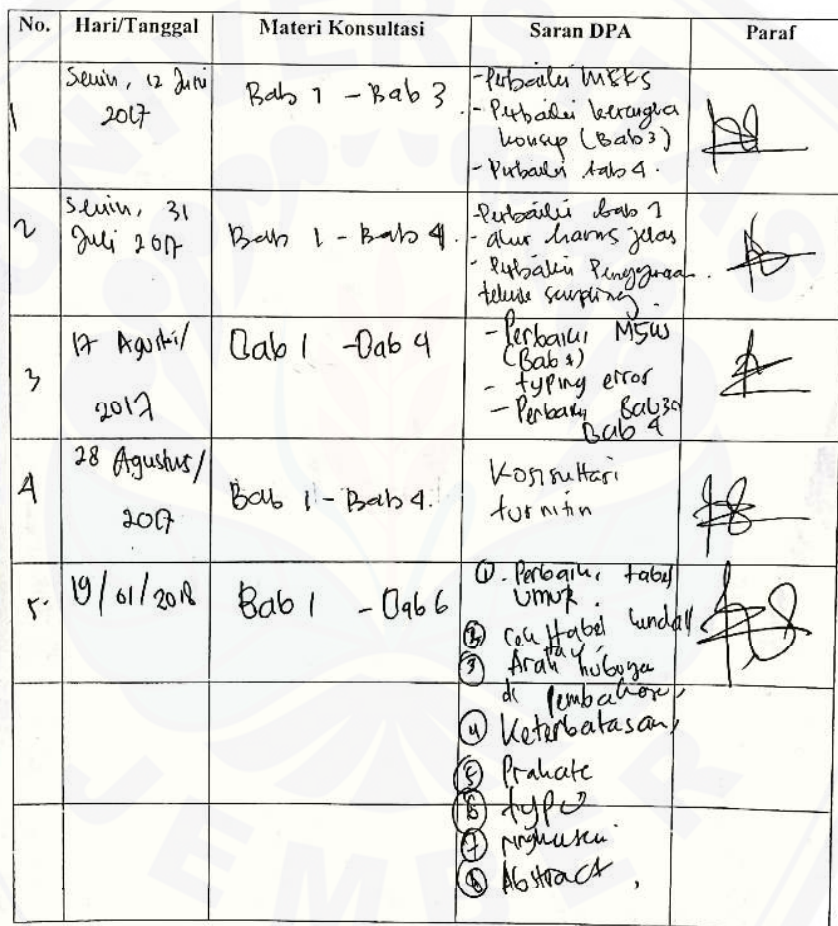 No. Hari/Tanggal Materi Konsultasi Saran DPA Paraf
1 Senin, 12 Juni 2017 Bab 1 - Bab 3 - Perbaiki MSKS
- Perbaiki kerangka
konsep (Bab 3)
- Perbaiki bab 4.
2 Senin, 31
Juli 2017 Bab 1 - Bab 4. - Perbaiki bab 1
- alur harus jelas
- Perbaiki Penggunaan
teknik sampling.
3 17 Agustus/
2017 Bab 1 - Bab 4 - Perbaiki
(Bab 1)
- typing error
- Perbaiki Bab 3
Bab 4
4 28 Agustus/
2017 Bab 1 - Bab 4. Konsultasi
turnitin
5. 19/01/2018 Bab 1 - Bab 6 1. Perbaiki tabel
umur.
2. cek tabel
3 Arah
di pembahasan,
4 Keterbatasan,
5 Prakata
6 typo
7 ringkasan
8 Abstract,
UNIVERSITAS
JEMBER